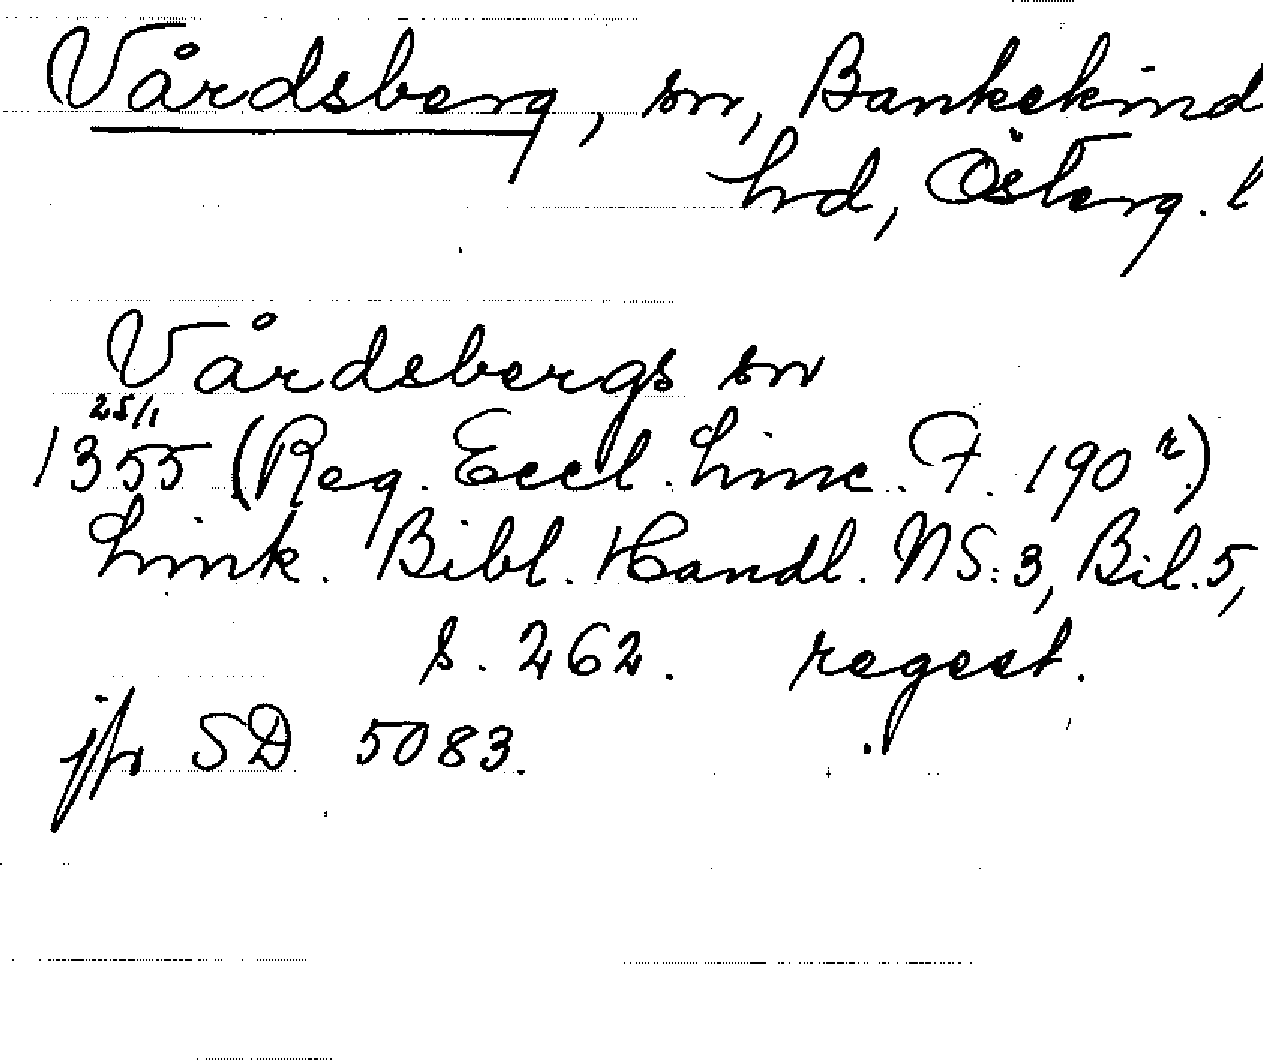 Vårdsberg, sn, Bankekind
hd, Österg. l
Vårdsbergs sn
25/1
1355 (Reg. Eccl. Linc. F. 190 r)
Link. Bibl. Handl. NS: 3, Bil. 5,
s. 262. regest.
jfr SD 5083.